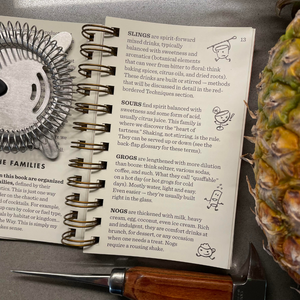 THE FAMILIES
this book are organized
families, defined by their
This is just one way
SLINGS are spirit-forward
mixed drinks, typically
balanced with sweetness and
aromatics (botanical elements
that can veer from bitter to floral: think
baking spices, citrus oils, and dried roots).
These drinks are built or stirred — methods
that will be discussed in detail in the red-
bordered Techniques section.
13
SOURS find spirit balanced with
sweetness and some form of acid,
usually citrus juice. This family is
where we discover the "heart of
tartness." Shaking, not stirring, is the rule.
They can be served up or down (see the
back-flap glossary for these terms).
GROGS are lengthened with more dilution
than booze: think seltzer, various sodas,
coffee, and such. What they call "quaffable"
on a hot day (or hot grogs for cold
days). Mostly water, light and easy.
Even easier — they're usually built
right in the glass.
NOGS are thickened with milk, heavy
cream, egg, coconut, even ice cream. Rich
and indulgent, they are comfort drinks at
brunch, for dessert, or any occasion
when one needs a treat. Nogs
require a rousing shake.